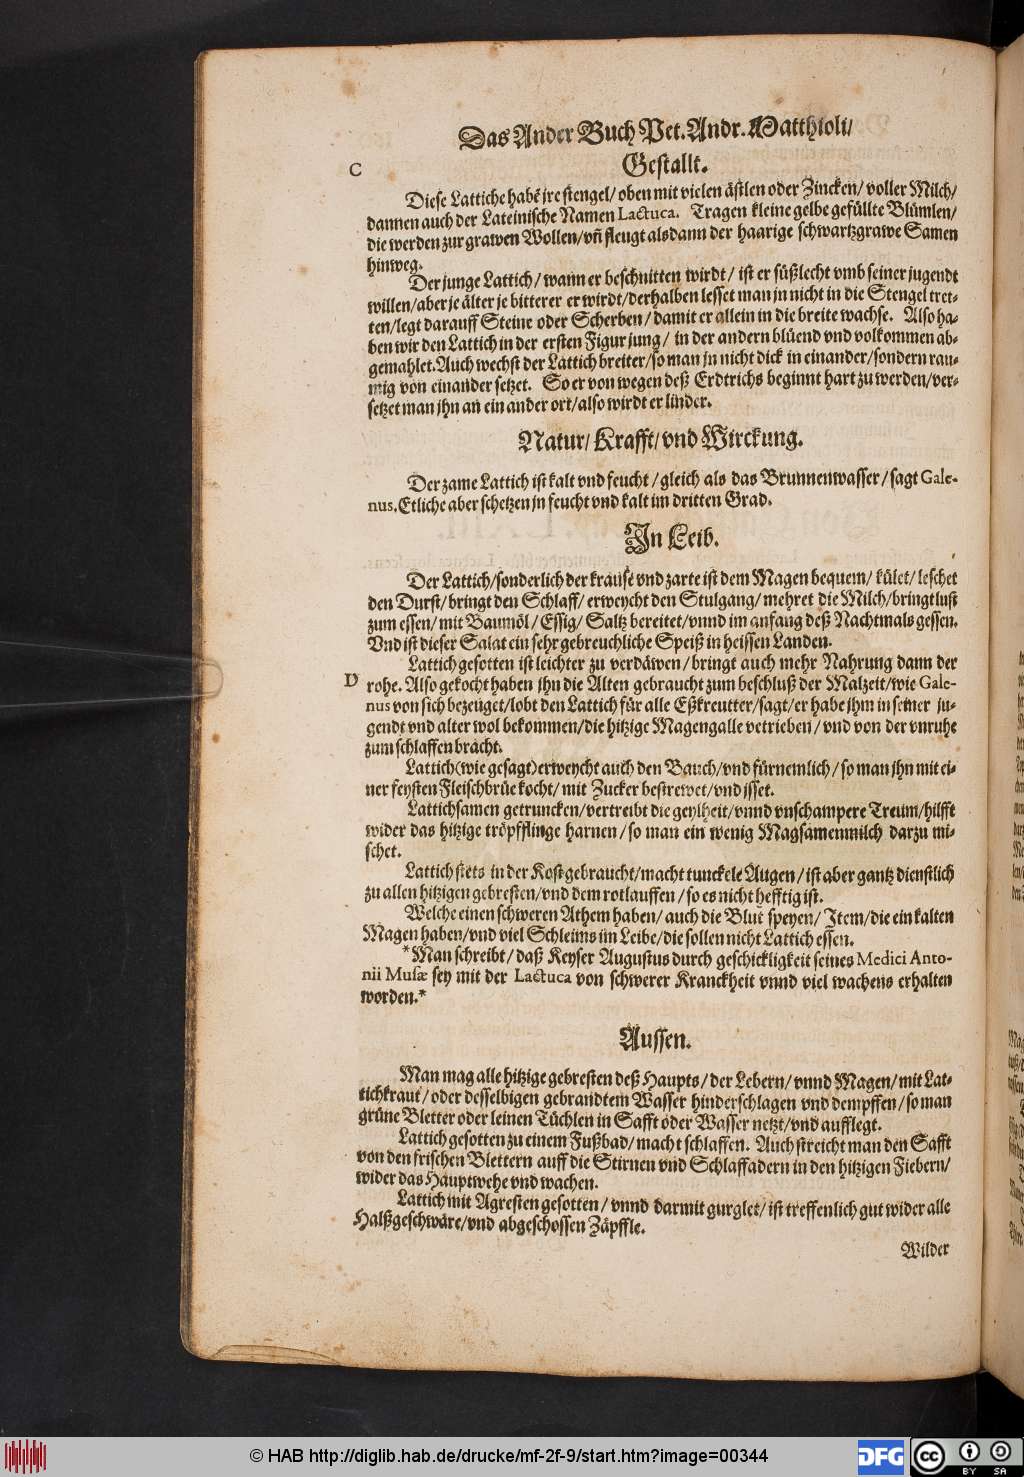 Das Ander Buch Pet. Andr. Matthioli/
Gestallt.
C
Diese Lattiche habē jre stengel/ oben mit vielen ästlen oder Zincken/ voller Milch/
dannen auch der Lateinische Namen Lactuca. Tragen kleine gelbe gefüllte Blümlen/
die werden zur grawen Wollen/ vñ fleugt alsdann der haarige schwartzgrawe Samen
hinweg.
Der junge Lattich/ wann er beschnitten wirdt/ ist er süßlecht vmb seiner jugendt
willen/ aber je älter je bitterer er wirdt/ derhalben lesset man jn nicht in die Stengel tret-
ten/ legt darauff Steine oder Scherben/ damit er allein in die breite wachse. Also ha-
ben wir den Lattich in der ersten Figur jung/ in der andern blüend vnd volkommen ab-
gemahlet. Auch wechst der Lattich breiter/ so man jn nicht dick in einander/ sondern rau-
mig von einander setzet. So er von wegen deß Erdtrichs beginnt hart zu werden/ ver-
setzet man jhn an ein ander ort/ also wirdt er linder.
Natur/ Krafft/ vnd Wirckung.
Der zame Lattich ist kalt vnd feucht/ gleich als das Brunnenwasser/ sagt Gale-
nus. Etliche aber schetzen jn feucht vnd kalt im dritten Grad.
In Leib.
Der Lattich/ sonderlich der krause vnd zarte ist dem Magen bequem/ kület/ leschet
den Durst/ bringt den Schlaff/ erweycht den Stulgang/ mehret die Milch/ bringt lust
zum essen/ mit Baumöl/ Essig/ Saltz bereitet/ vnnd im anfang deß Nachtmals gessen.
Vnd ist dieser Salat ein sehr gebreuchliche Speiß in heissen Landen.
Lattich gesotten ist leichter zu verdäwen/ bringt auch mehr Nahrung dann der
D
rohe. Also gekocht haben jhn die Alten gebraucht zum beschluß der Malzeit/ wie Gale-
nus von sich bezeuget/ lobt den Lattich für alle Eßkreutter/ sagt/ er habe jhm in seiner ju-
gendt vnd alter wol bekommen/ die hitzige Magengalle vetrieben/ vnd von der vnruhe
zum schlaffen bracht.
Lattich (wie gesagt) erweycht auch den Bauch/ vnd fürnemlich/ so man jhn mit ei-
ner feysten Fleischbrüe kocht/ mit Zucker bestrewet/ vnd jsset.
Lattichsamen getruncken/ vertreibt die geylheit/ vnnd vnschampere Treum/ hilfft
wider das hitzige tröpfflinge harnen/ so man ein wenig Magsamenmilch darzu mi-
schet.
Lattich stets in der Kost gebraucht/ macht tunckele Augen/ ist aber gantz dienstlich
zu allen hitzigen gebresten/ vnd dem rotlauffen/ so es nicht hefftig ist.
Welche einen schweren Athem haben/ auch die Blut speyen/ Item/ die ein kalten
Magen haben/ vnd viel Schleims im Leibe/ die sollen nicht Lattich essen.
*Man schreibt/ daß Keyser Augustus durch geschickligkeit seines Medici Anto-
nii Musæ sey mit der Lactuca von schwerer Kranckheit vnnd viel wachens erhalten
worden.*
Aussen.
Man mag alle hitzige gebresten deß Haupts/ der Lebern/ vnnd Magen/ mit Lat-
tichkraut/ oder desselbigen gebrandtem Wasser hinderschlagen vnd dempffen/ so man
grüne Bletter oder leinen Tüchlen in Safft oder Wasser netzt/ vnd aufflegt.
Lattich gesotten zu einem Fußbad/ macht schlaffen. Auch streicht man den Safft
von den frischen Blettern auff die Stirnen vnd Schlaffadern in den hitzigen Fiebern/
wider das Hauptwehe vnd wachen.
Lattich mit Agresten gesotten/ vnnd darmit gurglet/ ist treffenlich gut wider alle
Halßgeschwäre/ vnd abgeschossen Zäpffle.
Wilder
© HAB http://diglib.hab.de/drucke/mf-2f-9/start.htm?image=00344
DFG
cc BY SA